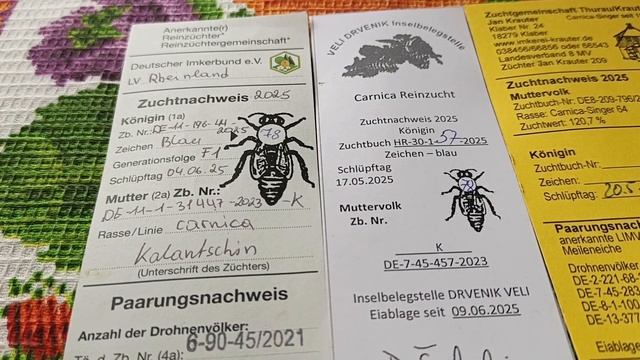 Anerkannte(r)
Reinzüchter*
Reinzüchtergemeinschaft*
Deutscher Imkerbund e.V.
LV Rheinland
Zuchtnachweis 2025
Königin (1a)
Zb. Nr.: DE-11-196-44-2025
Zeichen Blau
78
Generationsfolge F1
Schlupftag 04.06.25
Mutter (2a) Zb. Nr.:
DE-11-1-31447-2023 -K
Rasse/Linie carnica
Kalantschin
(Unterschrift des Züchters)
Paarungsnachweis
Anzahl der Drohnenvölker:
6-90-45/2021
d. Zb. Nr. (4a):
VELI DRVENIK Inselbelegstelle
Carnica Reinzucht
Zuchtnachweis 2025
Königin
Zuchtbuch HR-30-1-57-2025
Zeichen – blau
Schlüpftag
17.05.2025
Muttervolk
Zb. Nr.
K
DE-7-45-457-2023
Inselbelegstelle DRVENIK VELI
Eiablage seit 09.06.2025
Zuchtgemeinschaft Thurau/Krau
Jan Krauter
Carnica-Singer
Klaber Nr. 24
18279 Klaber
www.imkerei-krauter.de
038456/66856 oder 66543
Landesverband 8 MV
Züchter Jan Krauter 209
Zuchtnachweis 2025
Muttervolk
Zuchtbuch-Nr: DE8-209-796/2
Rasse: Carnica-Singer 64
Zuchtwert: 120,7 %
Königin
Zuchtbuch-Nr:
Zeichen:
Schlüpftag: 20.5
Paarungsnac
anerkannte LIMV
Meileneiche
Drohnenvölker
DE-2-221-68-
DE-7-45-283
DE-8-1-100
DE-13-377
Eiablage